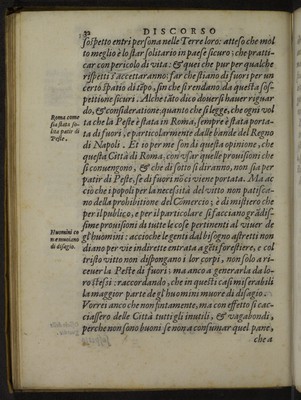 32
DISCORSO
sospetto entri persona nelle Terre loro: atteso che mol
to meglio è lo star solitario in paese sicuro; che pratti-
car con pericolo di vita: & quei che pur per qualche
rispetti s'accettaranno; far che stiano di fuori per un
certo spatio di tẽpo, sin che si rendano da questa so-
spettione sicuri. Alche tãto dico doversi hauer riguar
do, & consideratione; quanto che si legge, che ogni vol
Roma come
sia stata so-
lita patir di
Peste.
ta che la Peste è stata in Roma, sempre è stata porta-
ta di fuori, e particolarmente dalle bande del Regno
di Napoli. Et io per me son di questa opinione, che
questa Città di Roma, con vsar quelle prouisioni che
si conuengono, & che di sotto si diranno, non sia per
patir di Peste, se di fuori nõ ci viene portata. Ma ac
ciò che i popoli per la necesità del vitto non patisca-
no della prohibitione del Cõmercio; è di mistiero che
per il publico, e per il particolare si facciano grãdis-
sime prouisioni di tutte le cose pertinenti al viuer de
Huomini co
me muoiano
di disagio.
gl'huomini: acciochè le genti dal bisogno astrette non
diano per vie indirette entrata a gẽti forestiere, e col
tristo vitto non dispongano i lor corpi, non solo a ri-
ceuer la Peste di fuori; ma anco a generarla da lo-
ro stessi: raccordando, che in questi casi miserabili
la maggior parte de gl'huomini muore di disagio.
Vorrei anco che non fintamente, ma con effetto si cac-
ciassero delle Città tutti gl'inutili, & vagabondi,
perche non sono buoni se non a consumar quel pane,
che a